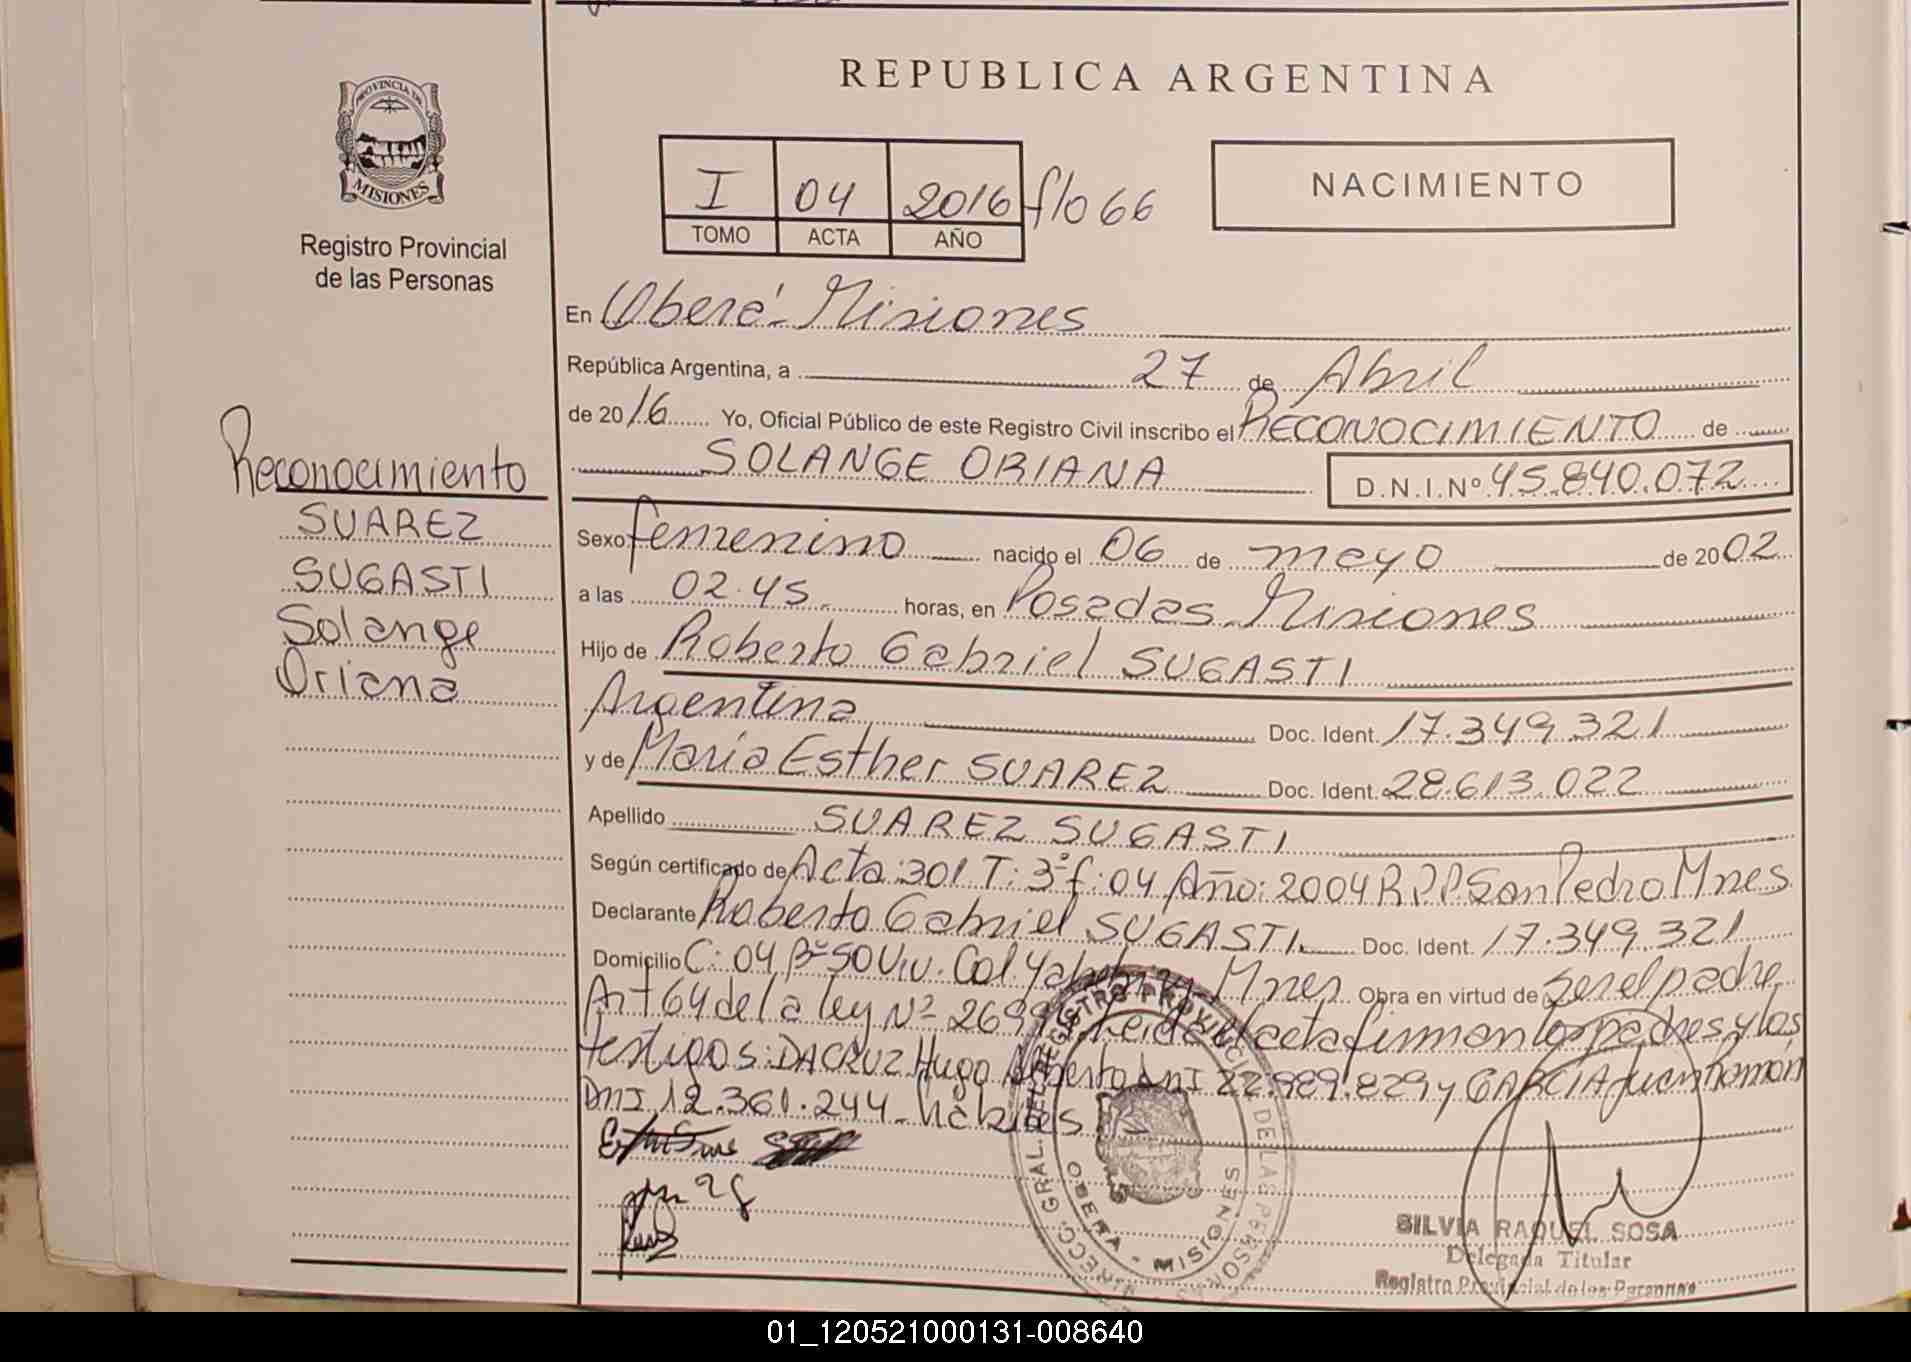 REPUBLICA ARGENTINA
PROVINCIA DE
MISIONES
Registro Provincial
de las Personas
I 04 2016 flo 66
TOMO ACTA AÑO
NACIMIENTO
En Oberá - Misiones
República Argentina, a 27 de Abril
de 2016 Yo, Oficial Público de este Registro Civil inscribo el RECONOCIMIENTO de
SOLANGE ORIANA D.N.I.Nº 45.840.072
Reconocimiento
SUAREZ
SUGASTI
Solange
Oriana
Sexo: femenino nacido el 06 de mayo de 2002
a las 02.45. horas, en Posadas. Misiones
Hijo de Roberto Gabriel SUGASTI
Argentina Doc. Ident. 17.349.321
y de Maria Esther SUAREZ Doc. Ident. 28.613.022
Apellido SUAREZ SUGASTI
Según certificado de Acta:301 T: 3º f:04 Año:2004 R.P.P. San Pedro Mnes
Declarante Roberto Gabriel SUGASTI Doc. Ident. 17.349.321
Domicilio C: 04 Bº 50 Viv. Col. Mnes Obra en virtud de ser el padre
Art 64 de la ley Nº leida el acta firman los padres y los
testigos: DACRUZ Hugo Alberto DNI 22.989.829 y GARCIA Juan Ramón
DNI 12.361.244 - habiles
DIRECC. GRAL. DEL REGISTRO PROVINCIAL DE LAS PERSONAS
OBERA - MISIONES
SILVIA RAQUEL SOSA
Delegada Titular
Registro Provincial de las Personas
01_120521000131-008640